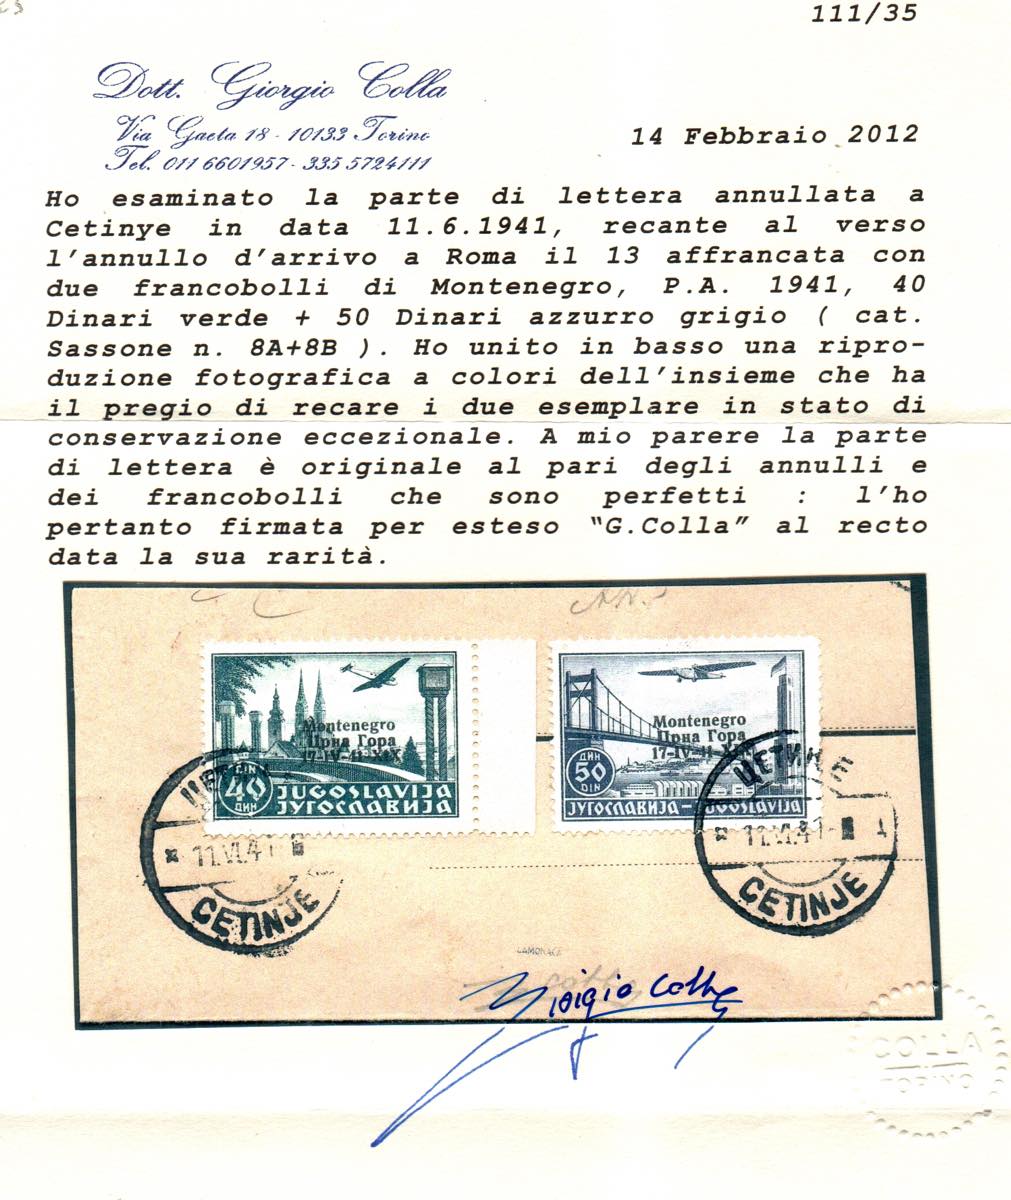 111/35
Dott. Giorgio Colla
Via Gaeta 18 - 10133 Torino
Tel. 011 6601957 - 335 5724111
14 Febbraio 2012
Ho esaminato la parte di lettera annullata a
Cetinye in data 11.6.1941, recante al verso
l'annullo d'arrivo a Roma il 13 affrancata con
due francobolli di Montenegro, P.A. 1941, 40
Dinari verde + 50 Dinari azzurro grigio ( cat.
Sassone n. 8A+8B ). Ho unito in basso una ripro-
duzione fotografica a colori dell'insieme che ha
il pregio di recare i due esemplare in stato di
conservazione eccezionale. A mio parere la parte
di lettera è originale al pari degli annulli e
dei francobolli che sono perfetti : l'ho
pertanto firmata per esteso “G.Colla” al recto
data la sua rarità.
Montenegro
Црна Гора
17-IV-41-XIX
DIN
40
ДИН
JUGOSLAVIJA
ЈУГОСЛАВИЈА
Montenegro
Црна Гора
17-IV-41-XIX
ДИН
50
DIN
ЈУГОСЛАВИЈА - JUGOSLAVIJA
11.VI.41
CETINJE
ЦЕТИЊЕ
11.VI.41
CETINJE
Giorgio Colla
COLLA
TORINO